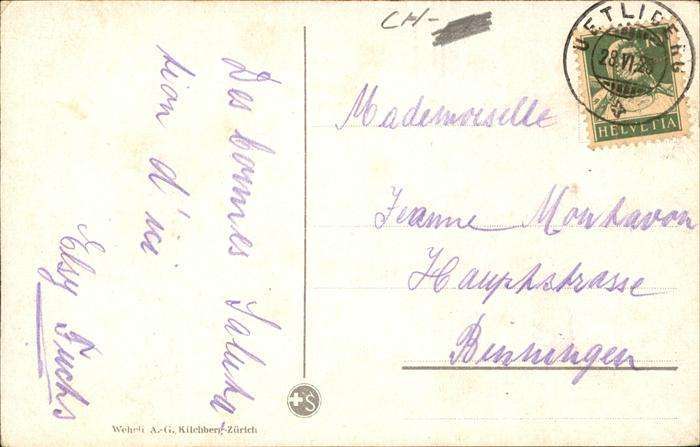 CH-
UETLIBERG
28.VI.
HELVETIA
Des bonnes Saluta-
tion d'ici
Elsy Fuchs
Mademoiselle
Jeanne Montavon
Hauptstrasse
Binningen
+S
Wehrli A.-G., Kilchberg-Zürich